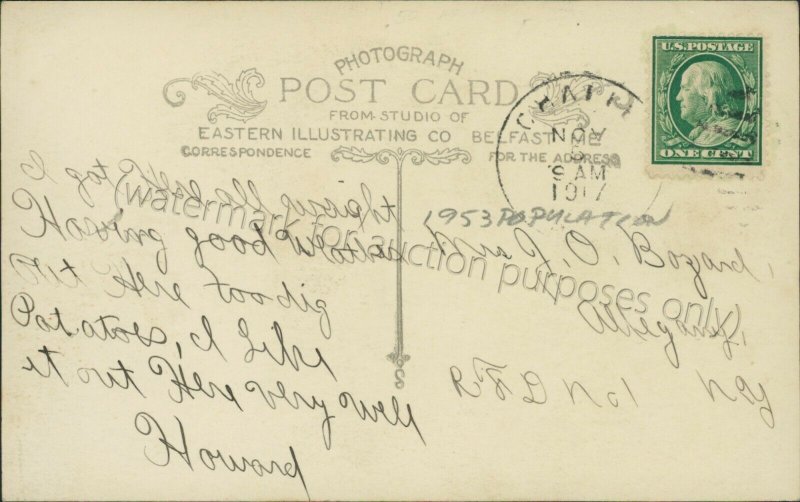 PHOTOGRAPH
POST CARD
FROM-STUDIO OF
EASTERN ILLUSTRATING CO BELFAST, ME
CORRESPONDENCE
FOR THE ADDRESS
U.S. POSTAGE
ONE CENT
NOV
9 AM
1917
1953 POPULATION
I got all right
Having good weather
out Here too dig
Potatoes, I Like
it out Here very well
Howard
Mrs J. O. Bozard,
Allegany,
R F D No 1 N Y
(watermark for auction purposes only)